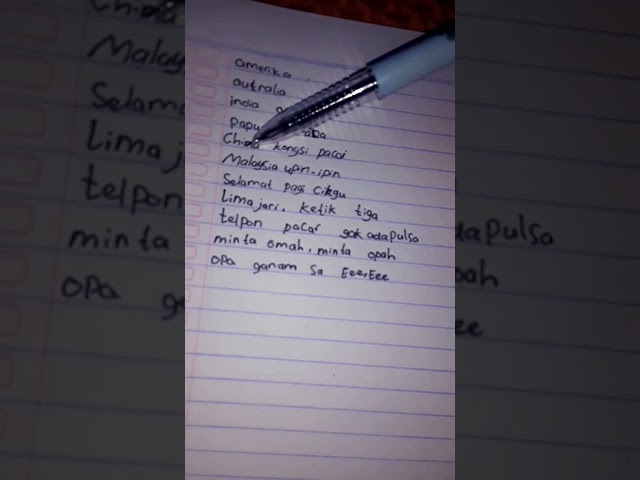 amerika
autralia
india
papu
China kongsi pacai
Malaysia upin-ipin
Selamat pagi Cikgu
Lima jari, ketik tiga
telpon pacar gak ada pulsa
minta omah, minta opah
opa ganam sa EeerEee